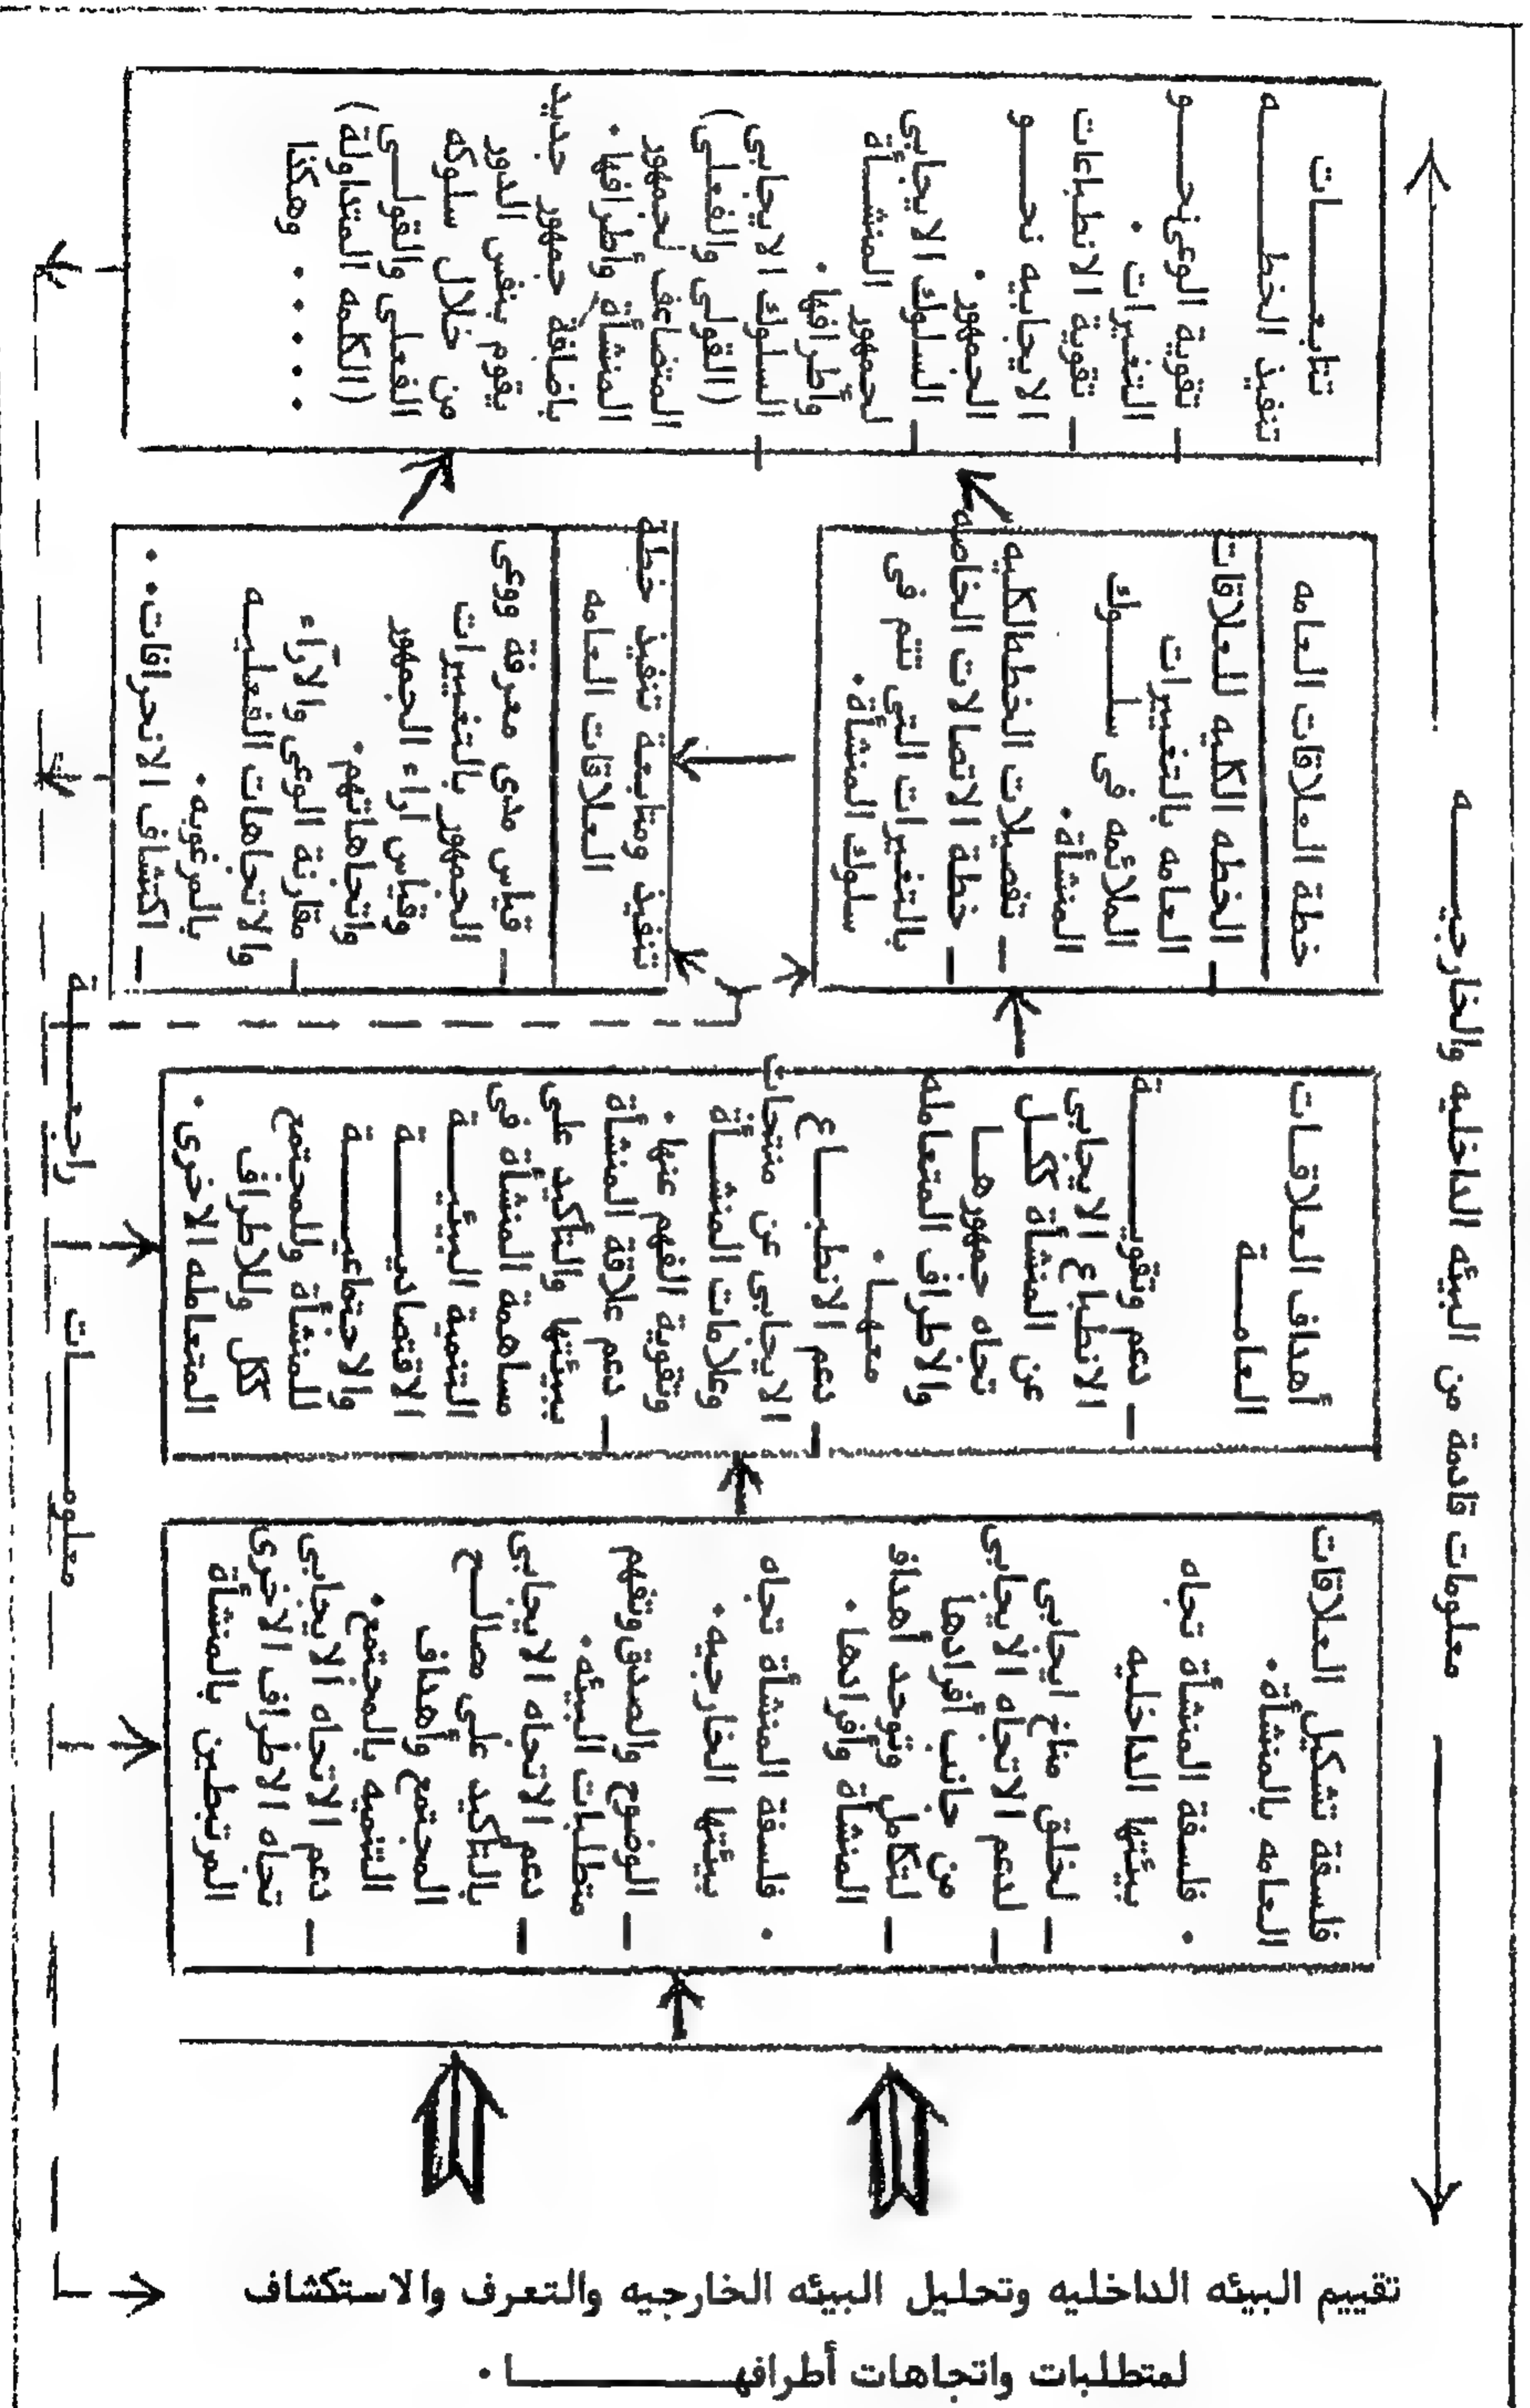 معلومات قادمة من البيئه الداخليه والخارجيه
تقييم البيئه الداخليه وتحليل البيئه الخارجيه والتعرف والاستكشاف
لمتطلبات واتجاهات أطرافها .
فلسفة تشكيل العلاقات
العامه بالمنشأة .
. فلسفة المنشأة تجاه
بيئتها الداخليه
– لخلق مناخ ايجابى
– لدعم الاتجاه الايجابى
من جانب أفرادها
– لتكامل وتوحد أهداف
المنشأة وأفرادها .
. فلسفة المنشأة تجاه
بيئتها الخارجيه .
– الوضوح والصدق وتفهم
متطلبات البيئه .
– دعم الاتجاه الايجابى
بالتأكيد على مصالح
المجتمع وأهداف
التنميه بالمجتمع .
– دعم الاتجاه الايجابى
تجاه الاطراف الاخرى
المرتبطين بالمنشأة
أهداف العلاقات
العامة
– دعم وتقوية
الانطباع الايجابى
عن المنشأة ككل
تجاه جمهورها
والاطراف المتعامله
معها .
– دعم الانطباع
الايجابى عن منتجات
وعلامات المنشأة
وتقوية الفهم عنها .
– دعم علاقة المنشأة
ببيئتها والتأكيد على
مساهمة المنشأة فى
التنمية البيئية
الاقتصادية
والاجتماعية
للمنشأة وللمجتمع
ككل وللاطراف
المتعامله الاخرى .
خطة العلاقات العامه
– الخطه الكليه للعلاقات
العامه بالتغييرات
الملائمه فى سلوك
المنشأة .
– تفصيلات الخطه الكليه
– خطة الاتصالات الخاصه
بالتغيرات التى تتم فى
سلوك المنشأة .
تنفيذ ومتابعة تنفيذ خطة
العلاقات العامه
– قياس مدى معرفة ووعى
الجمهور بالتغييرات
وقياس اراء الجمهور
واتجاهاتهم .
– مقارنة الوعى والآراء
والاتجاهات الفعليه
بالمرغوبه .
– اكتشاف الانحرافات . .
تتابعات
تنفيذ الخطه
– تقوية الوعى نحو
التغيرات .
– تقوية الانطباعات
الايجابيه نحو
الجمهور .
– السلوك الايجابى
لجمهور المنشأة
وأطرافها .
– السلوك الايجابى
(القولى والفعلى)
المتضاعف لجمهور
المنشأة وأطرافها .
باضافة جمهور جديد
يقوم بنفس الدور
من خلال سلوكه
الفعلى والقولى
(الكلمه المتداولة)
وهكذا . . . .
معلومات راجعة